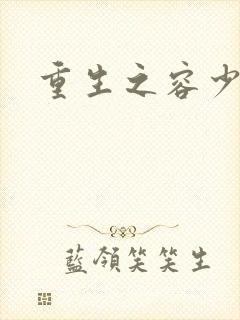 重生之容少
藍領笑笑生